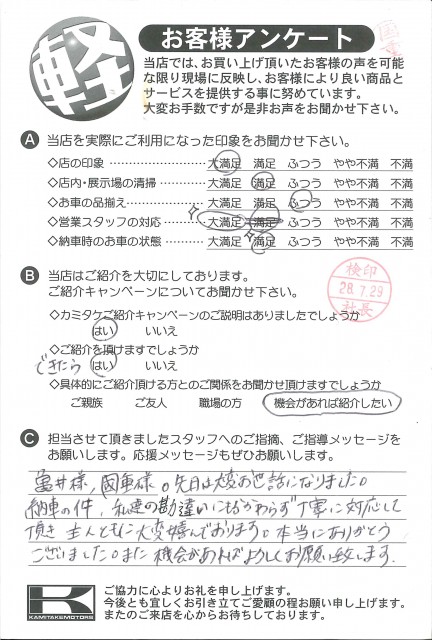 軽
お客様アンケート
当店では、お買い上げ頂いたお客様の声を可能
な限り現場に反映し、お客様により良い商品と
サービスを提供する事に努めています。
大変お手数ですが是非お声をお聞かせ下さい。
A 当店を実際にご利用になった印象をお聞かせ下さい。
◇店の印象 大満足 満足 ふつう やや不満 不満
◇店内・展示場の清掃 大満足 満足 ふつう やや不満 不満
◇お車の品揃え 大満足 満足 ふつう やや不満 不満
◇営業スタッフの対応 大満足 満足 ふつう やや不満 不満
◇納車時のお車の状態 大満足 満足 ふつう やや不満 不満
B 当店はご紹介を大切にしております。
ご紹介キャンペーンについてお聞かせ下さい。
検印
28.7.29
社長
◇カミタケご紹介キャンペーンのご説明はありましたでしょうか
はい いいえ
◇ご紹介を頂けますでしょうか
できたら はい いいえ
◇具体的にご紹介頂ける方とのご関係をお聞かせ頂けますでしょうか
ご親族 ご友人 職場の方 機会があれば紹介したい
C 担当させて頂きましたスタッフへのご指摘、ご指導メッセージを
お願いします。応援メッセージもぜひお願いします。
亀井様,國重様。先日は大変お世話になりました。
納車の件,私達の勘違いにもかかわらず丁寧に対応して
頂き主人ともに大変嬉んでおります。本当にありがとう
ございました。また機会があればよろしくお願い致します.
K
KAMITAKEMOTORS
ご協力に心よりお礼を申し上げます。
今後とも宜しくお引き立てご愛顧の程お願い申し上げます。
またのご来店を心からお待ちしております。